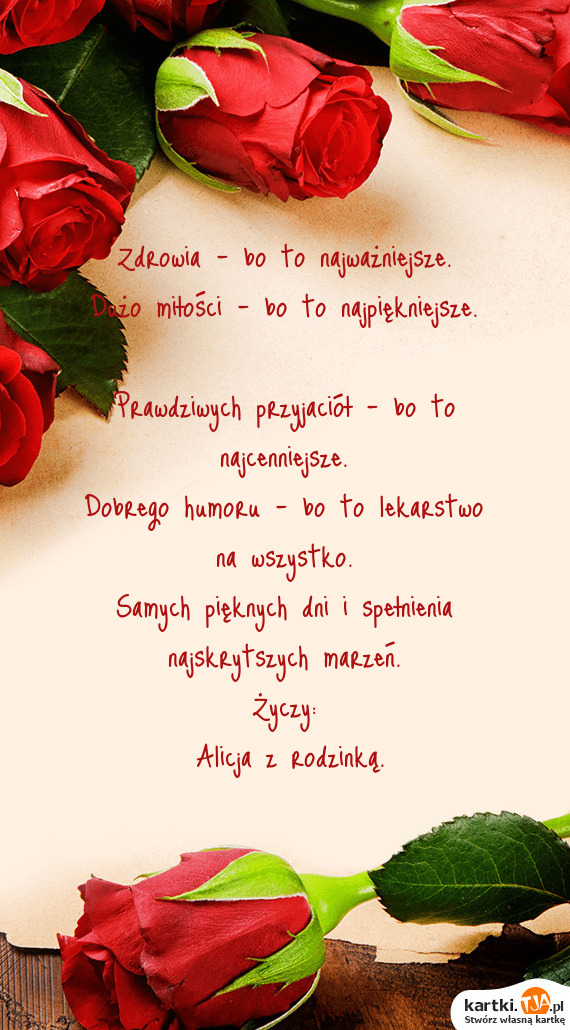 Zdrowia - bo to najważniejsze.
Dużo miłości - bo to najpiękniejsze.
Prawdziwych przyjaciół - bo to
najcenniejsze.
Dobrego humoru - bo to lekarstwo
na wszystko.
Samych pięknych dni i spełnienia
najskrytszych marzeń.
Życzy:
Alicja z rodzinką.
kartki.TJA.pl
Stwórz własną kartkę